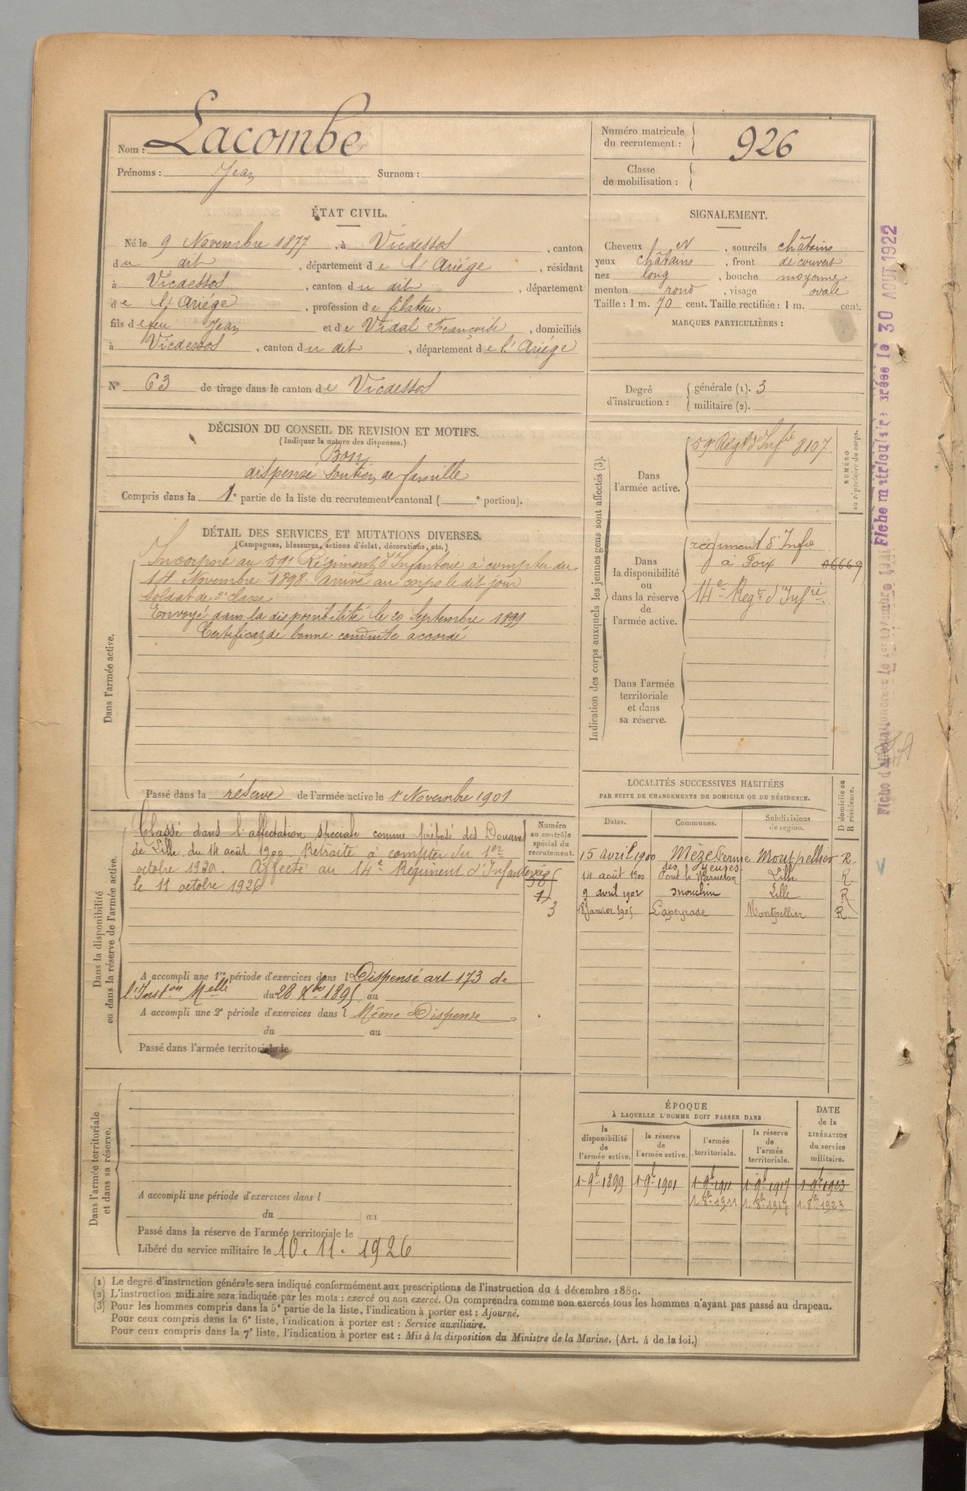 Nom : Lacombe
Prénoms : Jean Surnom :
Numéro matricule du recrutement : 926
Classe de mobilisation :
ÉTAT CIVIL.
Né le 9 Novembre 1877, à Vicdessos, canton
du dit, département de l'Ariège, résidant
à Vicdessos, canton du dit, département
de l'Ariège, profession de filateur
fils de feu Jean et de Vidal Françoise, domiciliés
à Vicdessos, canton du dit, département de l'Ariège
N° 63 de tirage dans le canton de Vicdessos
SIGNALEMENT.
Cheveux N, sourcils châtains
yeux châtains, front découvert
nez long, bouche moyenne
menton rond, visage ovale
Taille : 1 m. 70 cent. Taille rectifiée : 1 m. cent.
MARQUES PARTICULIÈRES :
Degré d'instruction : générale (1). 3
militaire (2).
DÉCISION DU CONSEIL DE REVISION ET MOTIFS.
(Indiquer la nature des dispenses.)
Bon
dispensé soutien de famille
Compris dans la 1e partie de la liste du recrutement cantonal ( e portion).
DÉTAIL DES SERVICES ET MUTATIONS DIVERSES.
(Campagnes, blessures, actions d'éclat, décorations, etc.)
Dans l'armée active.
Incorporé au 59e Régiment d'Infanterie à compter du
14 Novembre 1898 arrivé au corps le dit jour
Soldat de 2e classe
Envoyé dans la disponibilité le 20 Septembre 1899
Certificat de bonne conduite accordé
Passé dans la réserve de l'armée active le 1er Novembre 1901
Indication des corps auxquels les jeunes gens sont affectés (3).
Dans l'armée active.
59 Régt d'Infie 8107
NUMÉRO au répertoire du corps.
Dans la disponibilité ou dans la réserve de l'armée active.
régiment d'Infie
à Foix 06669
14e Régt d'Infie
Dans l'armée territoriale et dans sa réserve.
Dans la disponibilité ou dans la réserve de l'armée active.
Classé dans l'affectation spéciale comme préposé des Douanes
de Lille, du 14 août 1900. Retraité à compter du 1er
octobre 1920. Affecté au 14e Régiment d'Infanterie
le 11 octobre 1920
Numéro au contrôle spécial du recrutement.
3
A accompli une 1re période d'exercices dans l Dispensé art 173 de
l'Inston Melle du 28 Xbre 1895 au
A accompli une 2e période d'exercices dans l Même Dispense
du au
Passé dans l'armée territoriale le
LOCALITÉS SUCCESSIVES HABITÉES
PAR SUITE DE CHANGEMENTS DE DOMICILE OU DE RÉSIDENCE.
Dates. Communes. Subdivisions de région. D domicile ou R résidence.
15 avril 1900 Mèze Ferme des Yeuses Montpellier R
14 août 1900 Pont de Warneton Lille R
9 avril 1902 Mouchin Lille R
8 Janvier 1905 Lapeyrade Montpellier R
Dans l'armée territoriale et dans sa réserve.
A accompli une période d'exercices dans l
du au
Passé dans la réserve de l'armée territoriale le
Libéré du service militaire le 10.11.1926
ÉPOQUE
À LAQUELLE L'HOMME DOIT PASSER DANS
la disponibilité de l'armée active. la réserve de l'armée active. l'armée territoriale. la réserve de l'armée territoriale. DATE de la LIBÉRATION du service militaire.
1-9b-1899 1-9b-1901 1-9b-1911 1-9b-1917 1-9b-1923
1-8b-1911 1-8b-1917 1-8b-1923
(1) Le degré d'instruction générale sera indiqué conformément aux prescriptions de l'instruction du 4 décembre 1889.
(2) L'instruction militaire sera indiquée par les mots : exercé ou non exercé. On comprendra comme non exercés tous les hommes n'ayant pas passé au drapeau.
(3) Pour les hommes compris dans la 5e partie de la liste, l'indication à porter est : Ajourné.
Pour ceux compris dans la 6e liste, l'indication à porter est : Service auxiliaire.
Pour ceux compris dans la 7e liste, l'indication à porter est : Mis à la disposition du Ministre de la Marine. (Art. 4 de la loi.)
Fiche matriculaire créée le 30 AOUT 1922